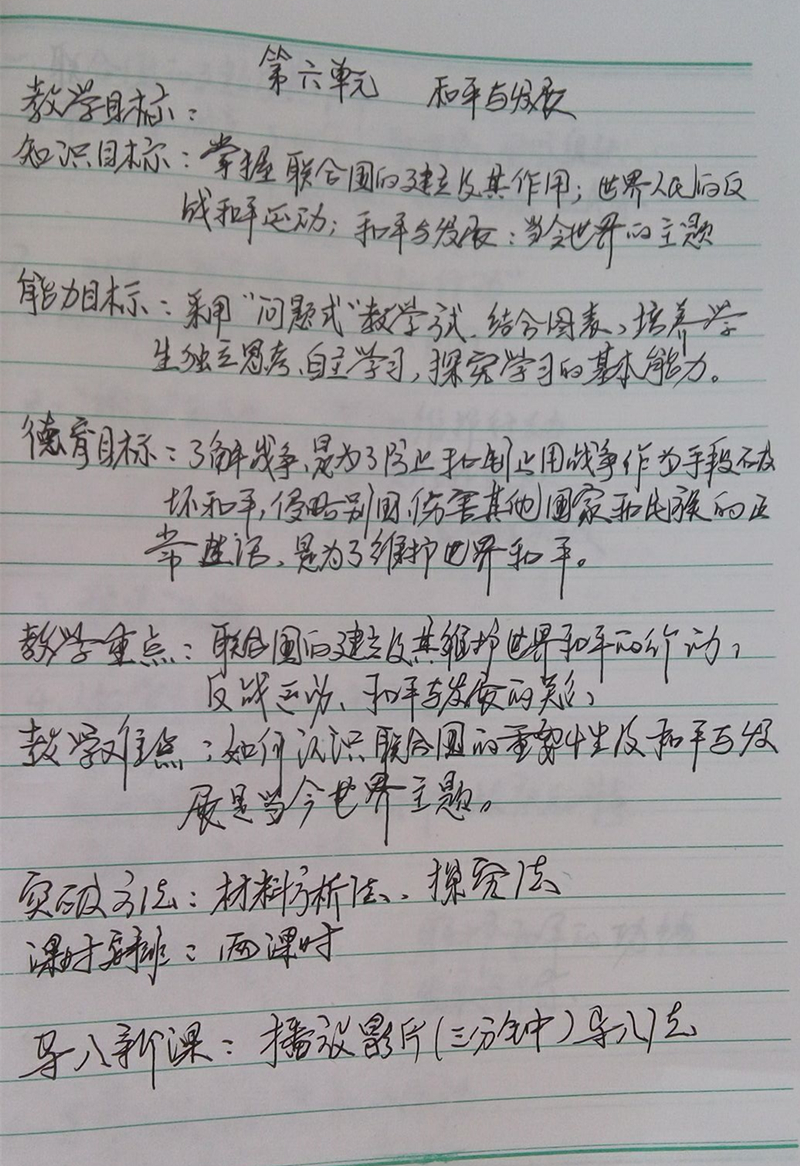 第六单元 和平与发展
教学目标：
知识目标：掌握联合国的建立及其作用；世界人民的反
战和平运动；和平与发展：当今世界的主题
能力目标：采用“问题式”教学试、结合图表、培养学
生独立思考、自主学习，探究学习的基本能力。
德育目标：了解战争，是为了防止和制止用战争作为手段破
坏和平，侵略别国，伤害其他国家和民族的正
常生活、是为了维护世界和平。
教学重点：联合国的建立及其维护世界和平的行动；
反战运动、和平与发展的关系；
教学难点：如何认识联合国的重要性及和平与发
展是当今世界主题。
突破方法：材料分析法、探究法
课时安排：两课时
导入新课：播放影片（三分钟）导入法